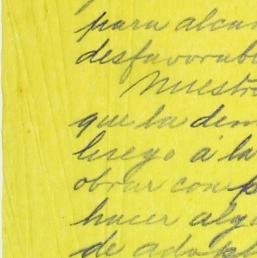 para alcan
desfavorabl
Nuestro
que la dem
luego a la
obrar con p
hacer alg
de adop